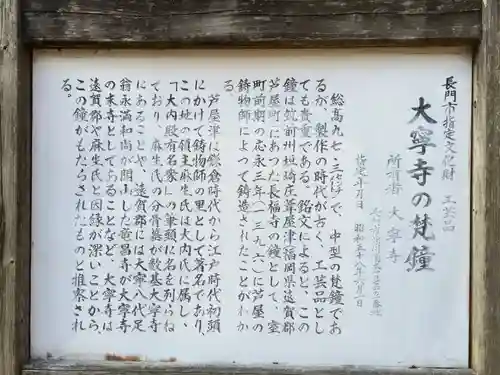 長門市指定文化財 工芸品
大寧寺の梵鐘
所有者 大寧寺
指定年月日 昭和五十
総高九七・三センチで、中型の梵鐘であ
るが、製作の時代が古く、工芸品とし
ても貴重である。銘文によると、この
鐘は筑前州垣崎庄葦屋津(福岡県遠賀郡
芦屋町)にあった長福寺の鐘として、室
町前期の応永三年(一三九六)に芦屋の
鋳物師によって鋳造されたことがわか
る。
芦屋津は鎌倉時代から江戸時代初頭
にかけて鋳物師の里として著名であり、
この地の領主麻生氏は大内氏に属し、
「大内殿有名衆」の筆頭に名を列らね
ており、麻生氏の分骨墓が数基大寧寺
にあることや、遠賀郡には大寧八代足
翁永満和尚が開山した竜昌寺が大寧寺
の末寺としてあることなど、大寧寺は
遠賀郡や麻生氏と因縁が深いことから、
この鐘がもたらされたものと推察され
る。